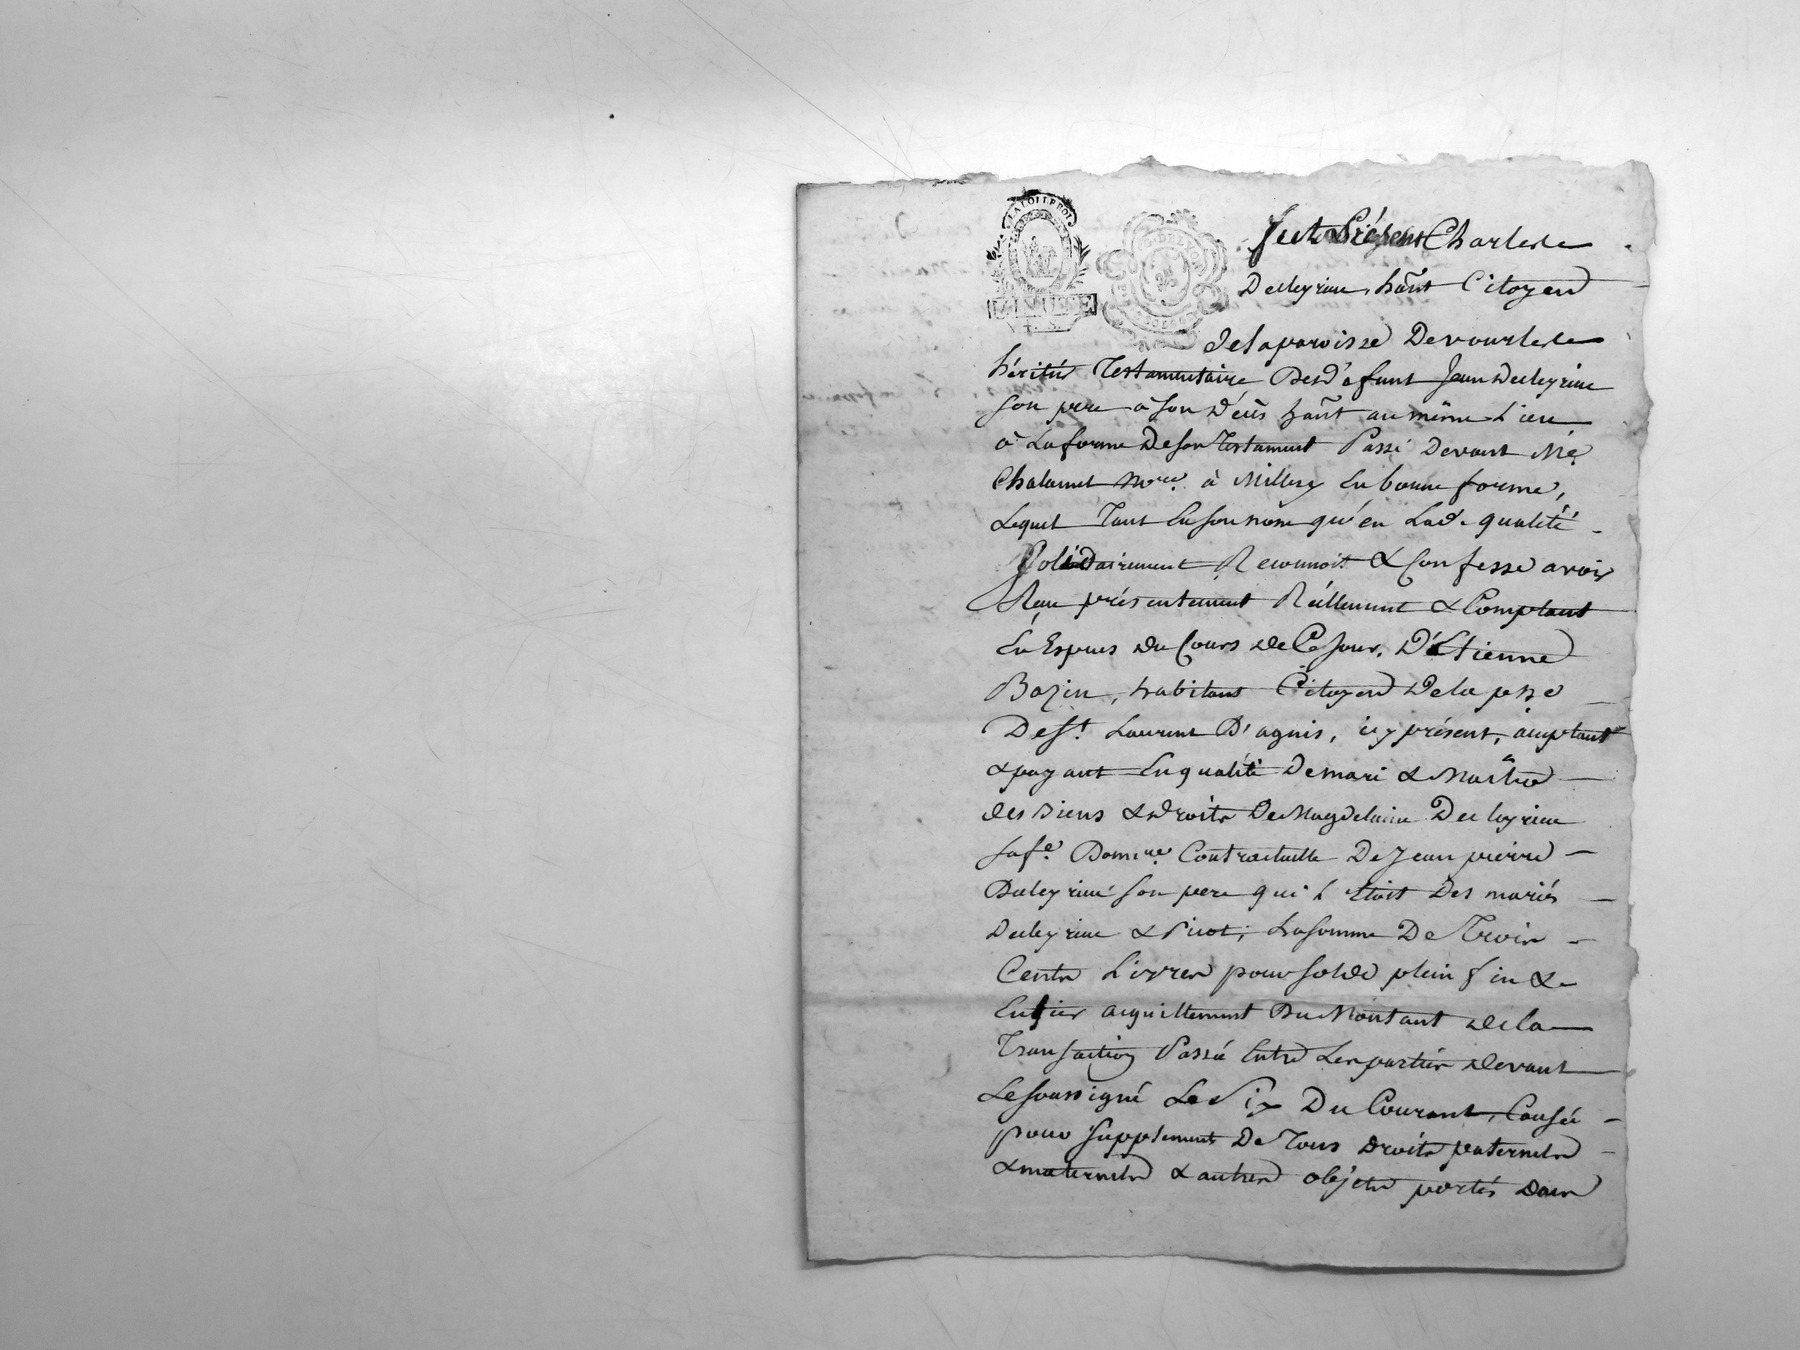 LA LOI LE ROI
MINUTE
Fut Présent Charles
Deleyrieu, hant Citoyen
de la paroisse De vourles
héritier Testamentaire De déffunt Jean Deleyrieu
son pere à son décès hant au même Lieu
à La forme De son Testament Passé Devant Me
Chalamel Nore à Millery En bonne forme,
Lequel Tant En son nom qu'en Lad. qualité
Solidairement Reconnoit & Confesse avoir
Reçu présentement Réellement & Comptant
En Espèces du Cours de Ce Jour, D'Etienne
Bazin, habitant Citoyen De la psse
De St. Laurent D'agnis, icy présent, acceptant
& payant En qualité De mari & Maître
des siens & droits De Magdelaine Deleyrieu
sa fe. Contractuelle De Jean pierre
Deleyrieu son pere qui L'étoit Des mariés
Deleyrieu & Picot, La somme De Trois
Cents Livres pour solde plein fin &
Entier acquittement Du Montant de la
Transaction Passée Entre Les parties devant
Le soussigné Le Six Du Courant, Causée
pour supplement De Tous droits paternels
& maternels & autres objets portés dans